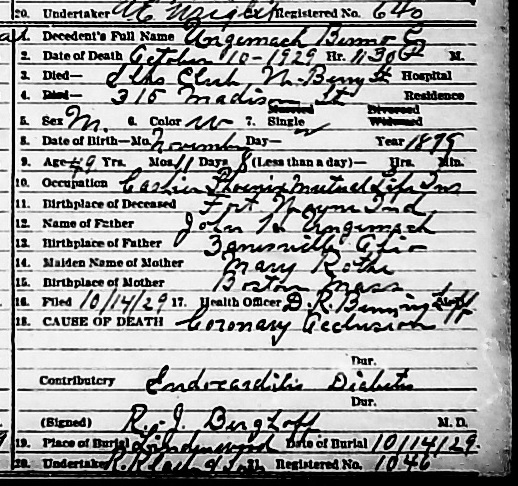 20. Undertaker Registered No. 640
1. Decedent's Full Name Ungemach Benno C
2. Date of Death October 10-1929 Hr. 11:30 P M.
3. Died— Elks Club W. Berry St Hospital
4. Died— 315 Madison St Residence
5. Sex M. 6. Color W 7. Single Married Divorced Widowed
8. Date of Birth—Mo. November Day— Year 1879
9. Age 49 Yrs. Mos 11 Days 8 (Less than a day)— Hrs. Min.
10. Occupation Cashier Phoenix Mutual Life Ins
11. Birthplace of Deceased Fort Wayne Ind
12. Name of Father John Ungemach
13. Birthplace of Father Zanesville Ohio
14. Maiden Name of Mother Mary Rothe
15. Birthplace of Mother Boston Mass
16. Filed 10/14/29 17. Health Officer D. R. Benninghoff
18. CAUSE OF DEATH Coronary Occlusion
Dur.
Contributory Endocarditis Diabetes
Dur.
(Signed) R. J. Berghoff M. D.
19. Place of Burial Lindenwood Date of Burial 10/14/29.
20. Undertaker Klaehn & Son 21. Registered No. 1046